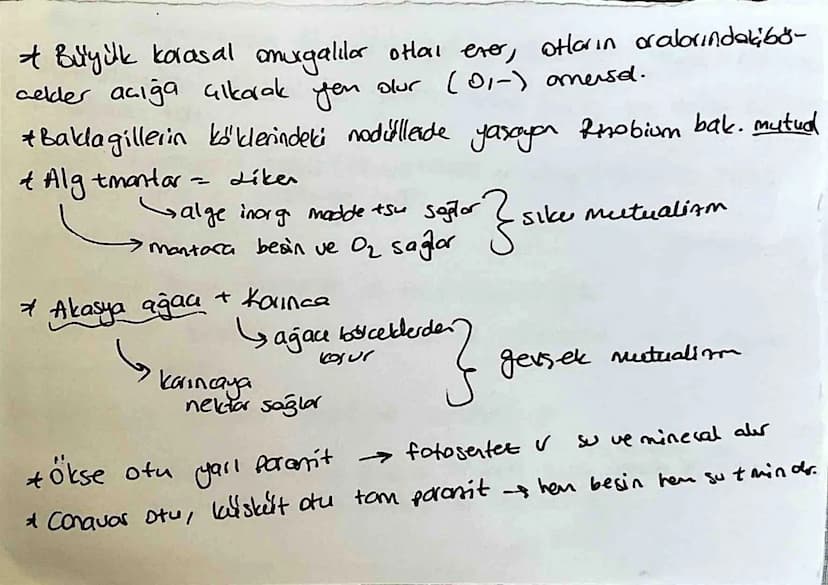 * Büyük karasal omurgalılar otları ener, otların aralarındaki bö-
cekler açığa çıkarak yem olur (0,-) amensal.
* Baklagillerin köklerindeki nodüllerde yaşayan Rhobium bak. mutual
* Alg + mantar = Liken
→ alge inorg madde + su sağlar
→ mantara besin ve O2 sağlar
} sıkı mutualizm
* Akasya ağacı + Karınca
→ ağacı böceklerden
korur
→ karıncaya
nektar sağlar
} gevşek mutualizm
* Ökse otu yarı parazit → fotosentez √ su ve mineral alır
* Canavar otu, küsküt otu tam parazit → hem besin hem su + min alır.